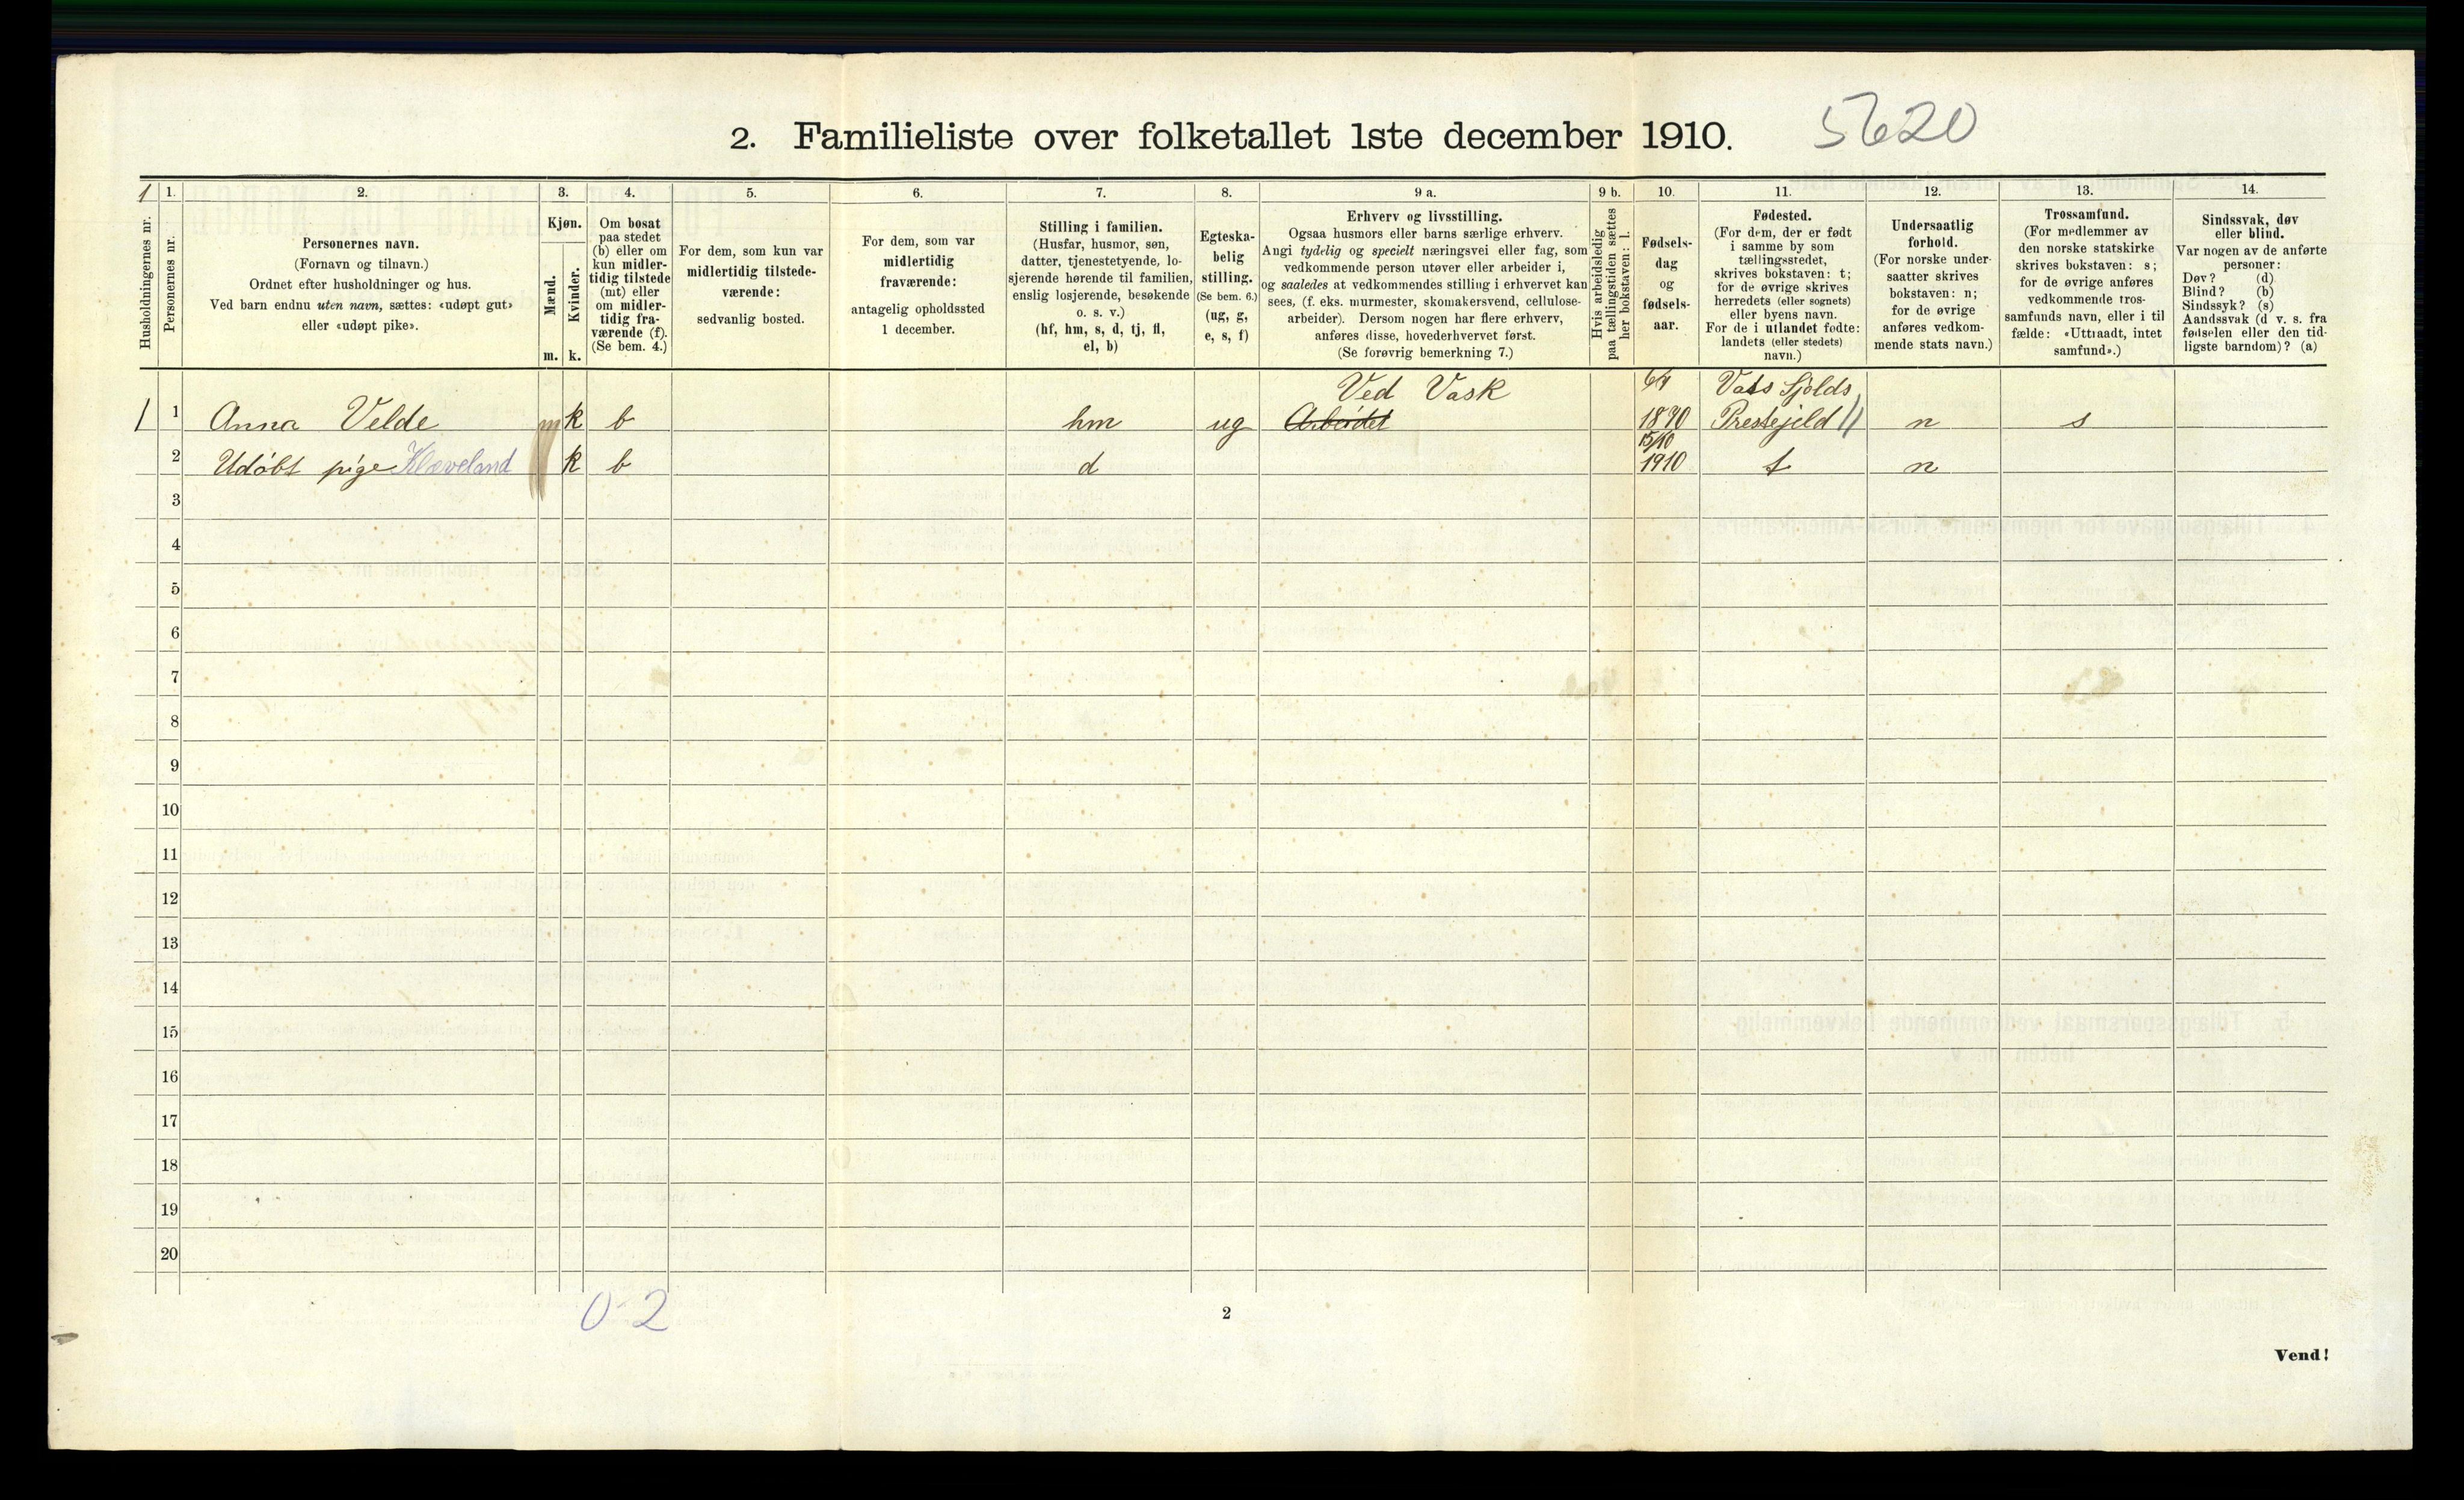 2. Familieliste over folketallet 1ste december 1910. 5620
1 1. 2. 3. 4. 5. 6. 7. 8. 9 a. 9 b. 10. 11. 12. 13. 14.
Husholdningernes nr.
Personernes nr.
Personernes navn.
(Fornavn og tilnavn.)
Ordnet efter husholdninger og hus.
Ved barn endnu uten navn, sættes: «udøpt gut»
eller «udøpt pike».
Kjøn.
Mænd.
Kvinder.
m. k.
Om bosat
paa stedet
(b) eller om
kun midler-
tidig tilstede
(mt) eller
om midler-
tidig fra-
værende (f).
(Se bem. 4.)
For dem, som kun var
midlertidig tilstede-
værende:
sedvanlig bosted.
For dem, som var
midlertidig
fraværende:
antagelig opholdssted
1 december.
Stilling i familien.
(Husfar, husmor, søn,
datter, tjenestetyende, lo-
sjerende hørende til familien,
enslig losjerende, besøkende
o. s. v.)
(hf, hm, s, d, tj, fl,
el, b)
Egteska-
belig
stilling.
(Se bem. 6.)
(ug, g,
e, s, f)
Erhverv og livsstilling.
Ogsaa husmors eller barns særlige erhverv.
Angi tydelig og specielt næringsvei eller fag, som
vedkommende person utøver eller arbeider i,
og saaledes at vedkommendes stilling i erhvervet kan
sees, (f. eks. murmester, skomakersvend, cellulose-
arbeider). Dersom nogen har flere erhverv,
anføres disse, hovederhvervet først.
(Se forøvrig bemerkning 7.)
Hvis arbeidsledig
paa tællingstiden sættes
her bokstaven: l.
Fødsels-
dag
og
fødsels-
aar.
Fødested.
(For dem, der er født
i samme by som
tællingsstedet,
skrives bokstaven: t;
for de øvrige skrives
herredets (eller sognets)
eller byens navn.
For de i utlandet fødte:
landets (eller stedets)
navn.)
Undersaatlig
forhold.
(For norske under-
saatter skrives
bokstaven: n;
for de øvrige
anføres vedkom-
mende stats navn.)
Trossamfund.
(For medlemmer av
den norske statskirke
skrives bokstaven: s;
for de øvrige anføres
vedkommende tros-
samfunds navn, eller i til
fælde: «Uttraadt, intet
samfund».)
Sindssvak, døv
eller blind.
Var nogen av de anførte
personer:
Døv? (d)
Blind? (b)
Sindssyk? (s)
Aandssvak (d v. s. fra
fødselen eller den tid-
ligste barndom)? (a)
Ved Vask
1 1 Anna Velde m k b hm ug Arbeidet 1870 Prestejeld n s
15/10
2 Udöbt pige Klæveland k b d 1910 t n
3
4
5
6
7
8
9
10
11
12
13
14
15
16
17
18
19
20
0-2
2
Vend!